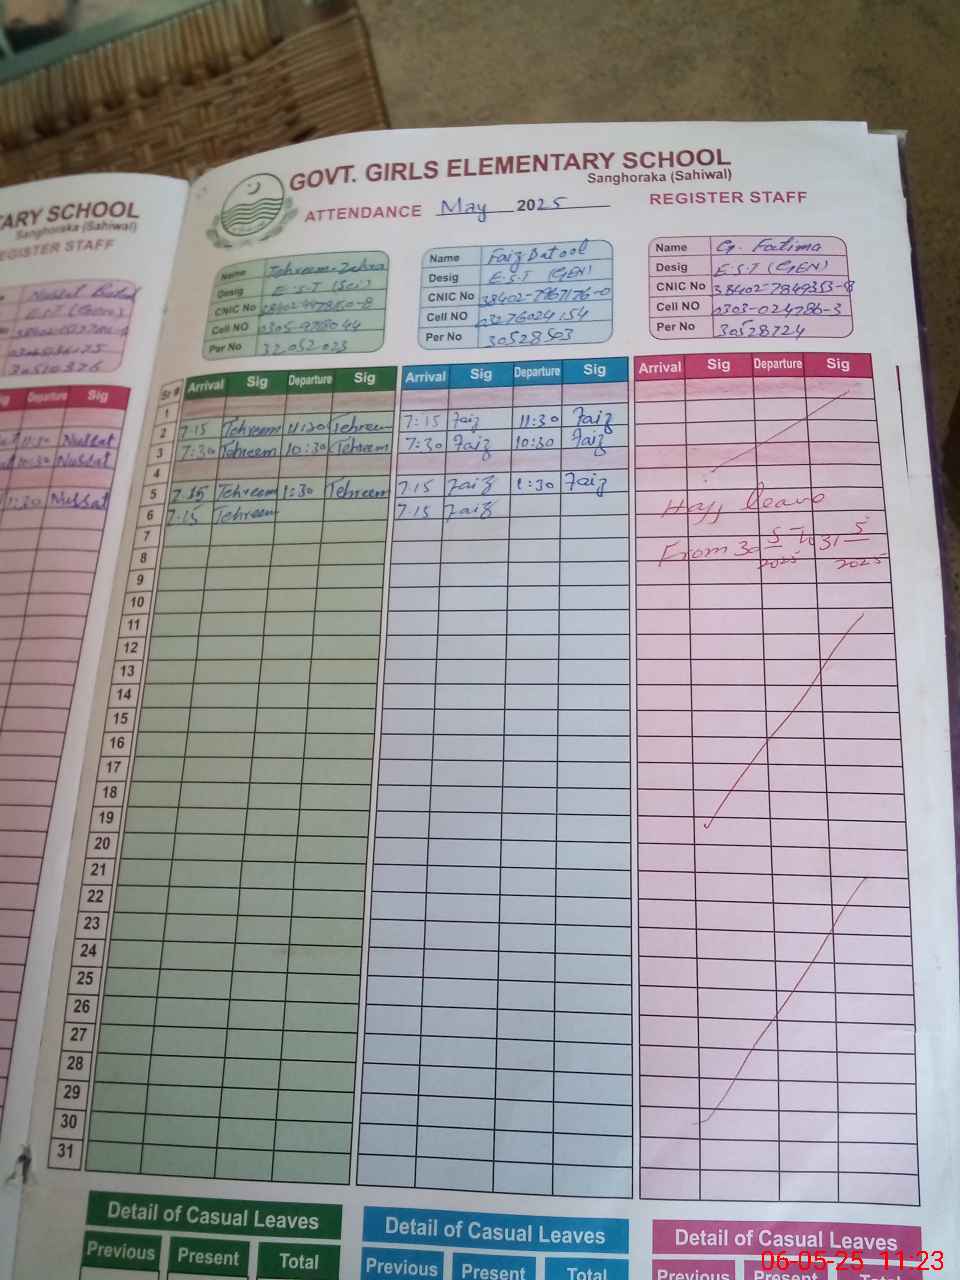 GOVT. GIRLS ELEMENTARY SCHOOL
Sanghoraka (Sahiwal)
ATTENDANCE May 2025 REGISTER STAFF
TARY SCHOOL
Sanghoraka (Sahiwal)
REGISTER STAFF
Name Tehreem Zahra
Desig E.S.T (Sci)
CNIC No
Cell NO
Per No 32052023
Name Faiz Batool
Desig E.S.T (GEN)
CNIC No 38402-7967176-0
Cell NO 03276024154
Per No 30528503
Name G. Fatima
Desig E.S.T (GEN)
CNIC No 38402-7849353-8
Cell NO 0303-024786-3
Per No 30528724
Departure Sig
11:30 Nussat
10:30 Nussat
1:30 Nussat
Sr # Arrival Sig Departure Sig Arrival Sig Departure Sig Arrival Sig Departure Sig
1
2 7:15 Tehreem 11:30 Tehreem 7:15 Faiz 11:30 Faiz
3 7:30 Tehreem 10:30 Tehreem 7:30 Faiz 10:30 Faiz
4
5 7:15 Tehreem 1:30 Tehreem 7:15 Faiz 1:30 Faiz
6 7:15 Tehreem 7:15 Faiz
leave
From 30 5/2025 to 31 5/2025
7
8
9
10
11
12
13
14
15
16
17
18
19
20
21
22
23
24
25
26
27
28
29
30
31
Detail of Casual Leaves
Previous Present Total
Detail of Casual Leaves
Previous Present Total
Detail of Casual Leaves
Previous Present
06-05-25 11:23